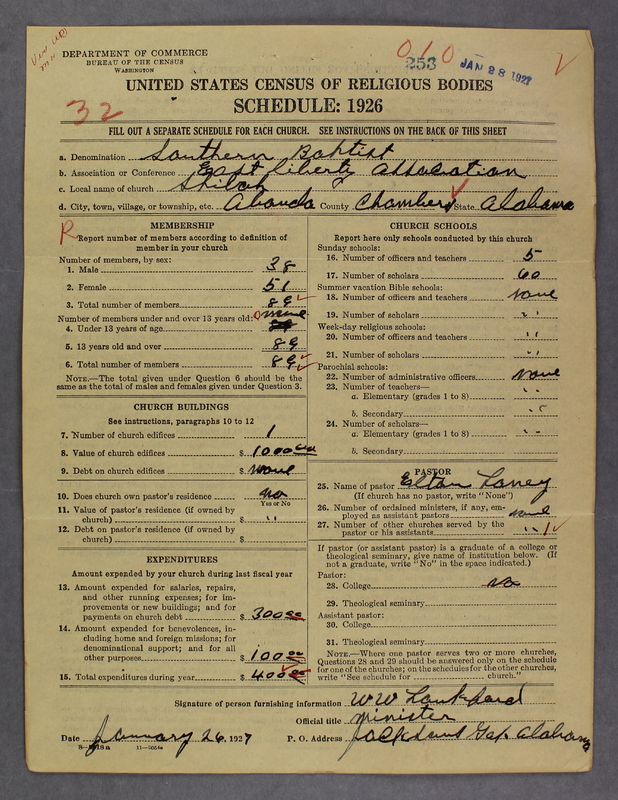 DEPARTMENT OF COMMERCE
BUREAU OF THE CENSUS
WASHINGTON
010
253
JAN 28 1927
UNITED STATES CENSUS OF RELIGIOUS BODIES
SCHEDULE: 1926
32
FILL OUT A SEPARATE SCHEDULE FOR EACH CHURCH. SEE INSTRUCTIONS ON THE BACK OF THIS SHEET
a. Denomination Southern Baptist
b. Association or Conference East liberty association
c. Local name of church Shiloh
d. City, town, village, or township, etc. Abanda County Chambers State Alabama
R
MEMBERSHIP
Report number of members according to definition of
member in your church
Number of members, by sex:
1. Male 38
2. Female 51
3. Total number of members 89
Number of members under and over 13 years old:
4. Under 13 years of age none
5. 13 years old and over 89
6. Total number of members 89
NOTE.—The total given under Question 6 should be the
same as the total of males and females given under Question 3.
CHURCH BUILDINGS
See instructions, paragraphs 10 to 12
7. Number of church edifices 1
8. Value of church edifices $ 1000.00
9. Debt on church edifices $ none
10. Does church own pastor's residence no
Yes or No
11. Value of pastor's residence (if owned by
church) $ "
12. Debt on pastor's residence (if owned by
church) $
EXPENDITURES
Amount expended by your church during last fiscal year
13. Amount expended for salaries, repairs,
and other running expenses; for im-
provements or new buildings; and for
payments on church debt $ 300.00
14. Amount expended for benevolences, in-
cluding home and foreign missions; for
denominational support; and for all
other purposes $ 100.00
15. Total expenditures during year $ 400.00
CHURCH SCHOOLS
Report here only schools conducted by this church
Sunday schools:
16. Number of officers and teachers 5
17. Number of scholars 60
Summer vacation Bible schools:
18. Number of officers and teachers none
19. Number of scholars "
Week-day religious schools:
20. Number of officers and teachers "
21. Number of scholars "
Parochial schools:
22. Number of administrative officers none
23. Number of teachers—
a. Elementary (grades 1 to 8) "
b. Secondary "
24. Number of scholars—
a. Elementary (grades 1 to 8) "
b. Secondary
PASTOR
25. Name of pastor Elton Laney
(If church has no pastor, write "None")
26. Number of ordained ministers, if any, em-
ployed as assistant pastors none
27. Number of other churches served by the
pastor or his assistants " 1
If pastor (or assistant pastor) is a graduate of a college or
theological seminary, give name of institution below. (If
not a graduate, write "No" in the space indicated.)
Pastor:
28. College no
29. Theological seminary
Assistant pastor:
30. College
31. Theological seminary
NOTE.—Where one pastor serves two or more churches,
Questions 28 and 29 should be answered only on the schedule
for one of the churches; on the schedules for the other churches,
write "See schedule for church."
Signature of person furnishing information W W Lankford
Official title Minister
Date January 26, 1927 P. O. Address Jacksons Gap Alabama